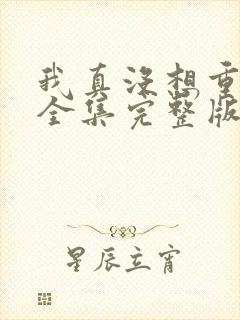 我真没想重
全集完整版
星辰立宵